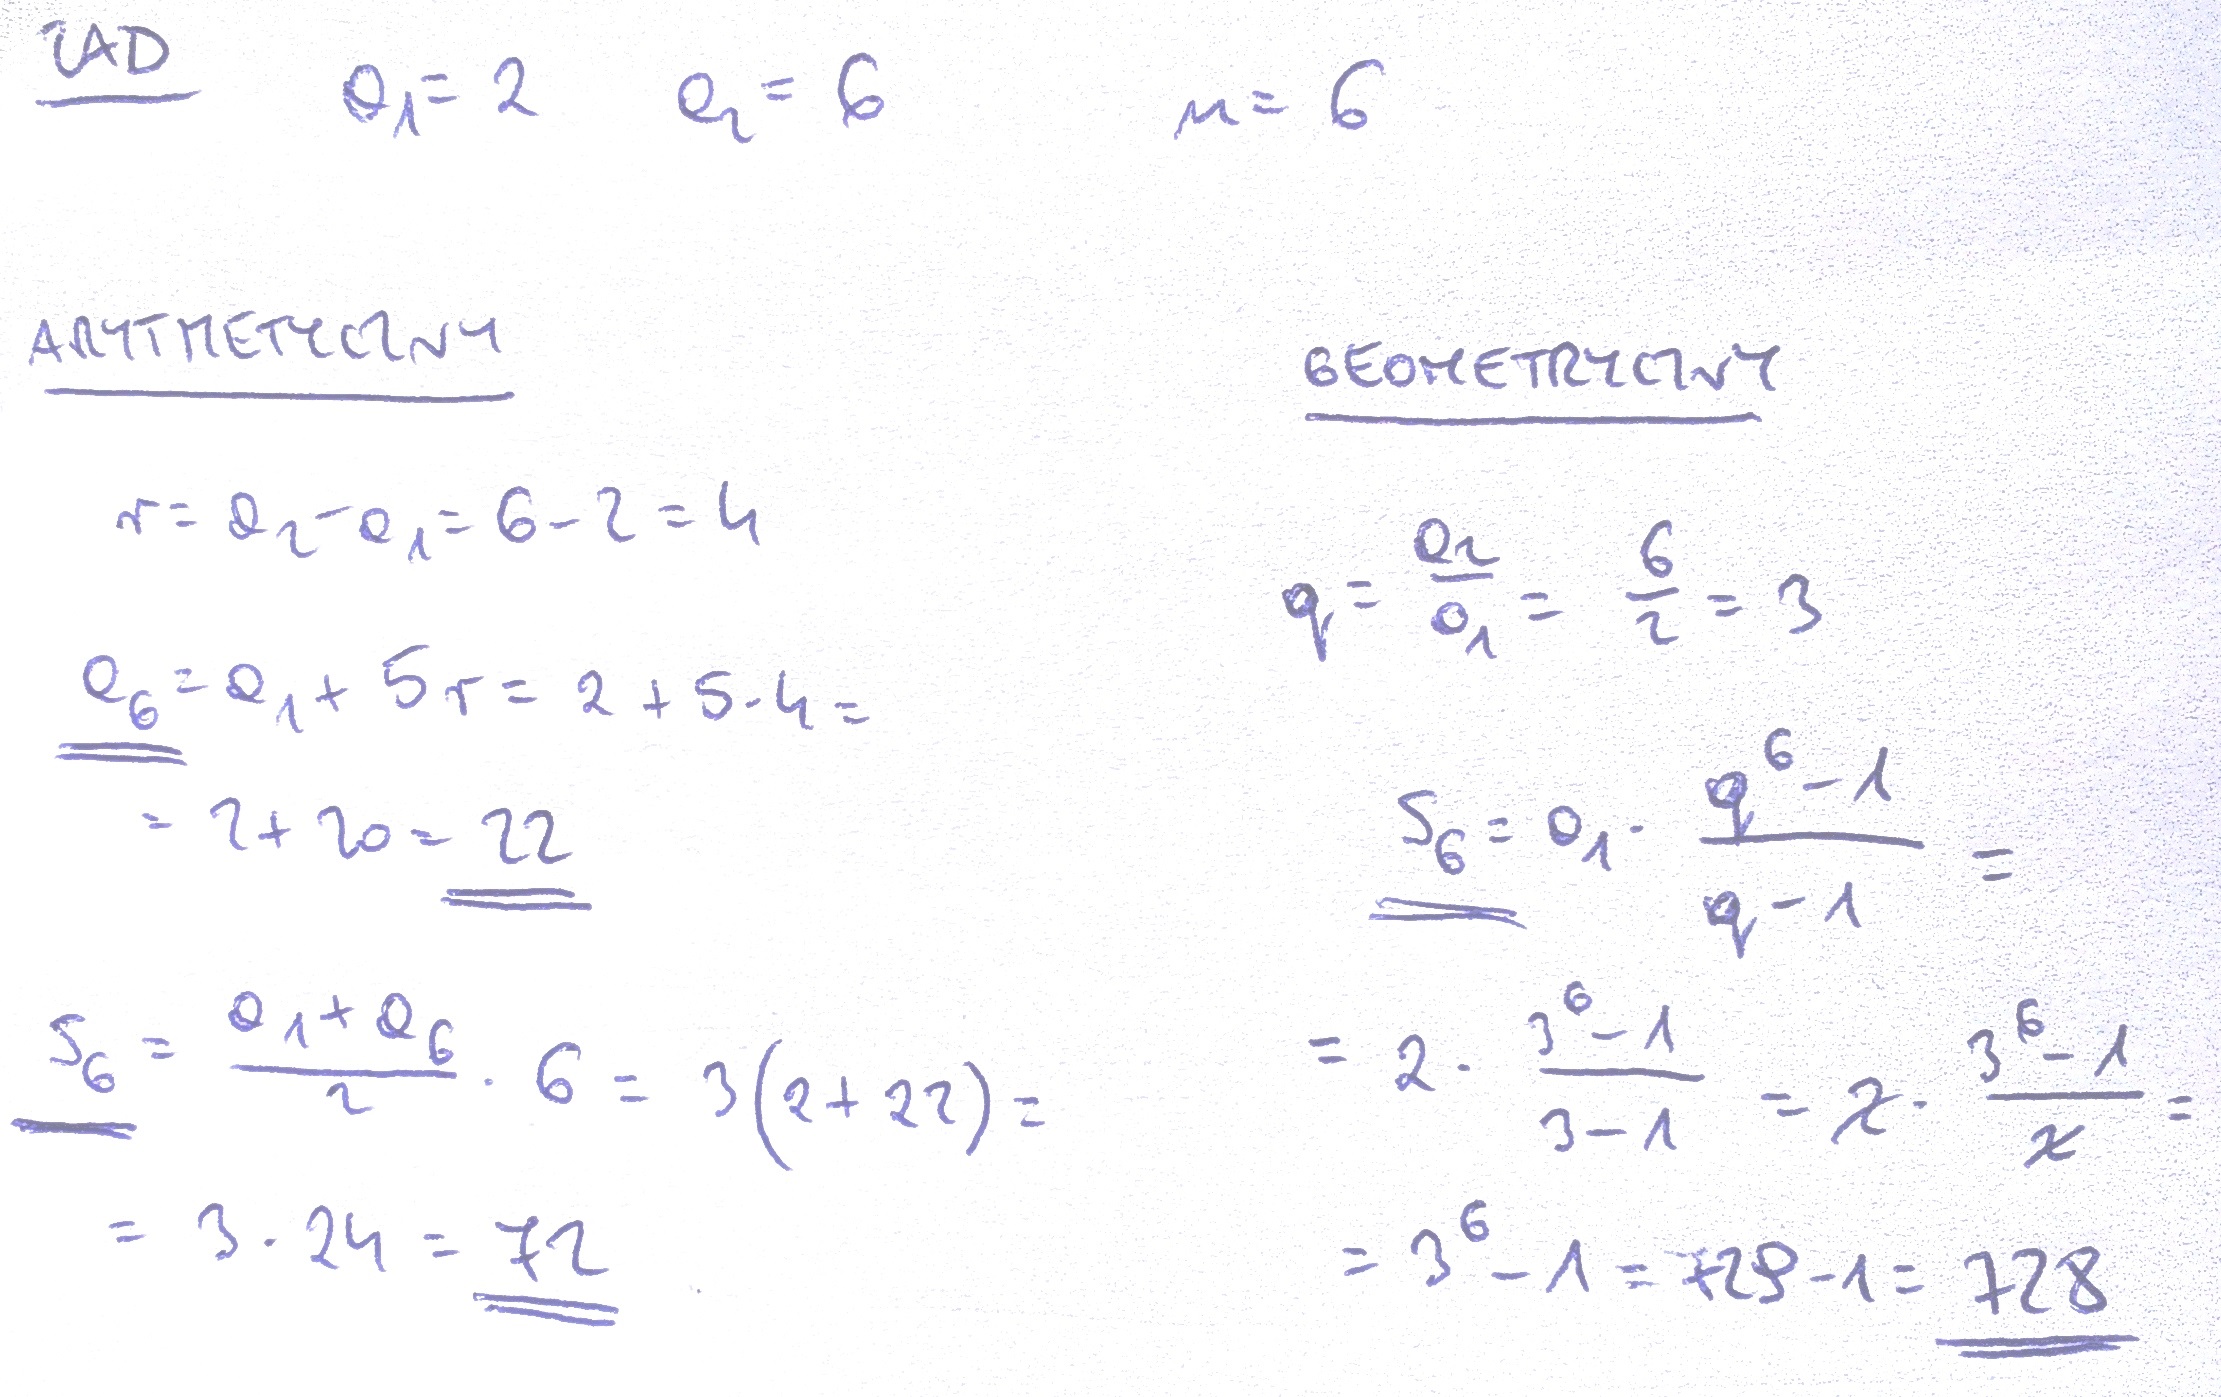 ZAD a₁ = 2 a₂ = 6 n = 6
ARYTMETYCZNY
r = a₂ - a₁ = 6 - 2 = 4
a₆ = a₁ + 5r = 2 + 5·4 =
= 2 + 20 = 22
S₆ = (a₁ + a₆)/2 · 6 = 3(2 + 22) =
= 3 · 24 = 72
GEOMETRYCZNY
q = a₂/a₁ = 6/2 = 3
S₆ = a₁ · (q⁶ - 1)/(q - 1) =
= 2 · (3⁶ - 1)/(3 - 1) = 2 · (3⁶ - 1)/2 =
= 3⁶ - 1 = 729 - 1 = 728